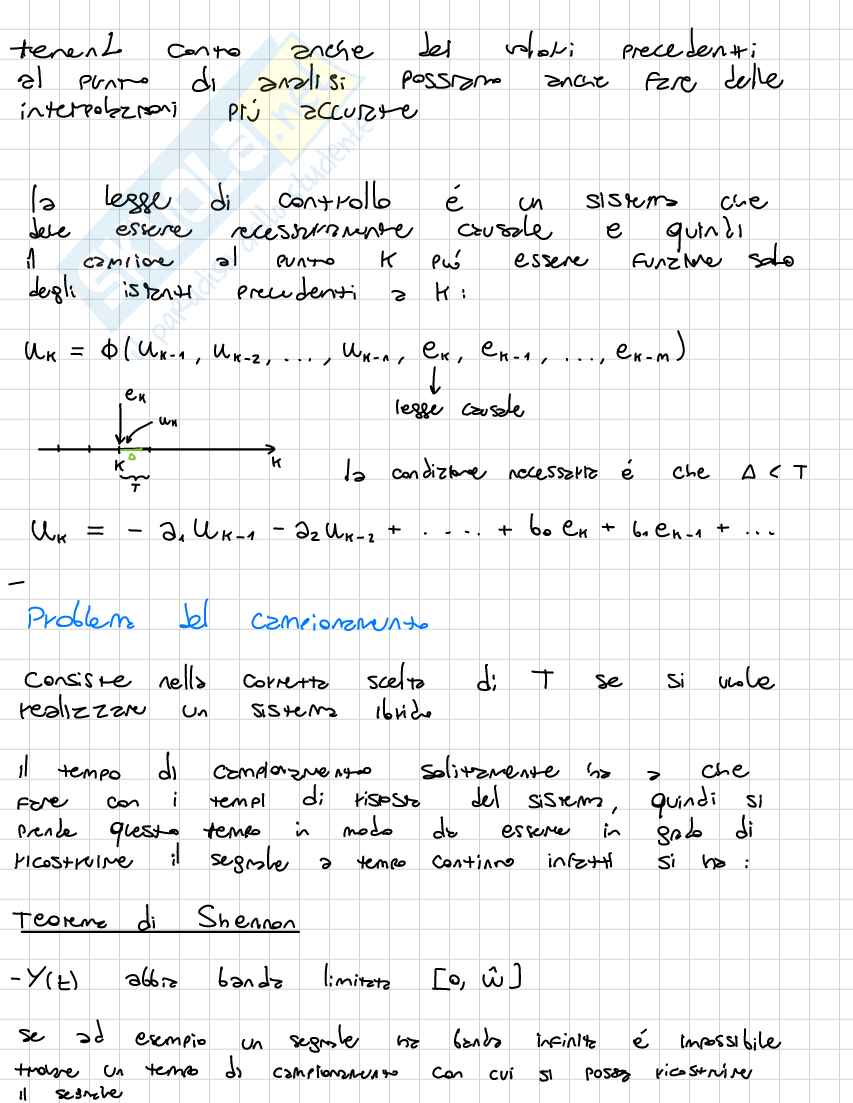 tenendo conto anche dei valori precedenti
al punto di analisi possiamo anche fare delle
interpolazioni più accurate
SKUOLA.net
paradiso dello studente
la legge di controllo é un sistema che
deve essere necessariamente causale e quindi
il campione al punto K può essere funzione solo
degli istanti precedenti a K:
u_K = Φ(u_{K-1}, u_{K-2}, ..., u_{K-n}, e_K, e_{K-1}, ..., e_{K-m})
↓
legge causale
e_K
u_K
Δ
K
K
T
la condizione necessaria é che Δ < T
u_K = - a_1 u_{K-1} - a_2 u_{K-2} + ..... + b_0 e_K + b_1 e_{K-1} + ...
Problema del campionamento
Consiste nella corretta scelta di T se si vuole
realizzare un sistema ibrido
il tempo di campionamento solitamente ha a che
fare con i tempi di risposta del sistema, quindi si
prende questo tempo in modo da essere in grado di
ricostruire il segnale a tempo continuo infatti si ha:
Teorema di Shannon
- Y(t) abbia banda limitata [0, ŵ]
se ad esempio un segnale ha banda infinita é impossibile
trovare un tempo di campionamento con cui si possa ricostruire
il segnale